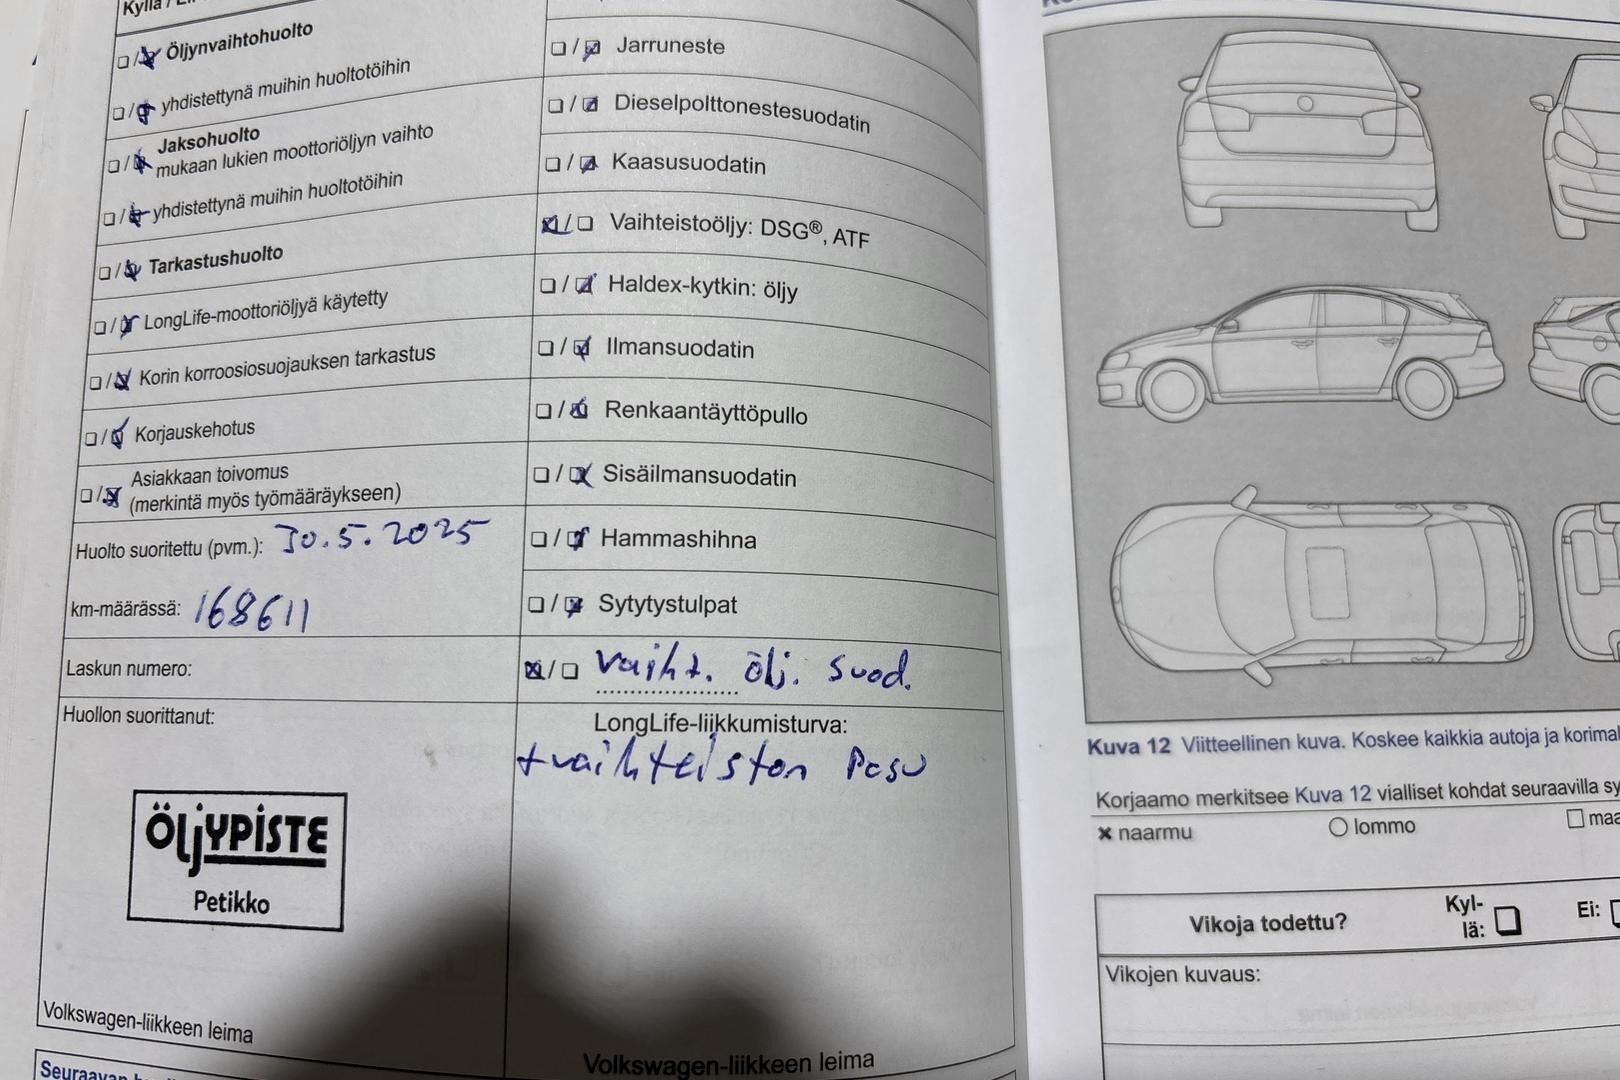 Kyllä /
☐/☒ Öljynvaihtohuolto
☐/☒ yhdistettynä muihin huoltotöihin
☐/☒ Jaksohuolto
mukaan lukien moottoriöljyn vaihto
☐/☒ yhdistettynä muihin huoltotöihin
☐/☒ Tarkastushuolto
☐/☒ LongLife-moottoriöljyä käytetty
☐/☒ Korin korroosiosuojauksen tarkastus
☐/☒ Korjauskehotus
☐/☒ Asiakkaan toivomus
(merkintä myös työmääräykseen)
Huolto suoritettu (pvm.): 30.5.2025
km-määrässä: 168611
Laskun numero:
Huollon suorittanut:
ÖLJYPISTE
Petikko
Volkswagen-liikkeen leima
Seuraavan
☐/☒ Jarruneste
☐/☒ Dieselpolttonestesuodatin
☐/☒ Kaasusuodatin
☒/☐ Vaihteistoöljy: DSG®, ATF
☐/☒ Haldex-kytkin: öljy
☐/☒ Ilmansuodatin
☐/☒ Renkaantäyttöpullo
☐/☒ Sisäilmansuodatin
☐/☒ Hammashihna
☐/☒ Sytytystulpat
☒/☐ vaiht. ölj. suod.
LongLife-liikkumisturva:
+vaihteiston Pesu
Volkswagen-liikkeen leima
Kuva 12 Viitteellinen kuva. Koskee kaikkia autoja ja
Korjaamo merkitsee Kuva 12 vialliset kohdat seuraavilla
× naarmu ○ lommo ☐
Vikoja todettu? Kyl-
lä: ☐ Ei: ☐
Vikojen kuvaus: